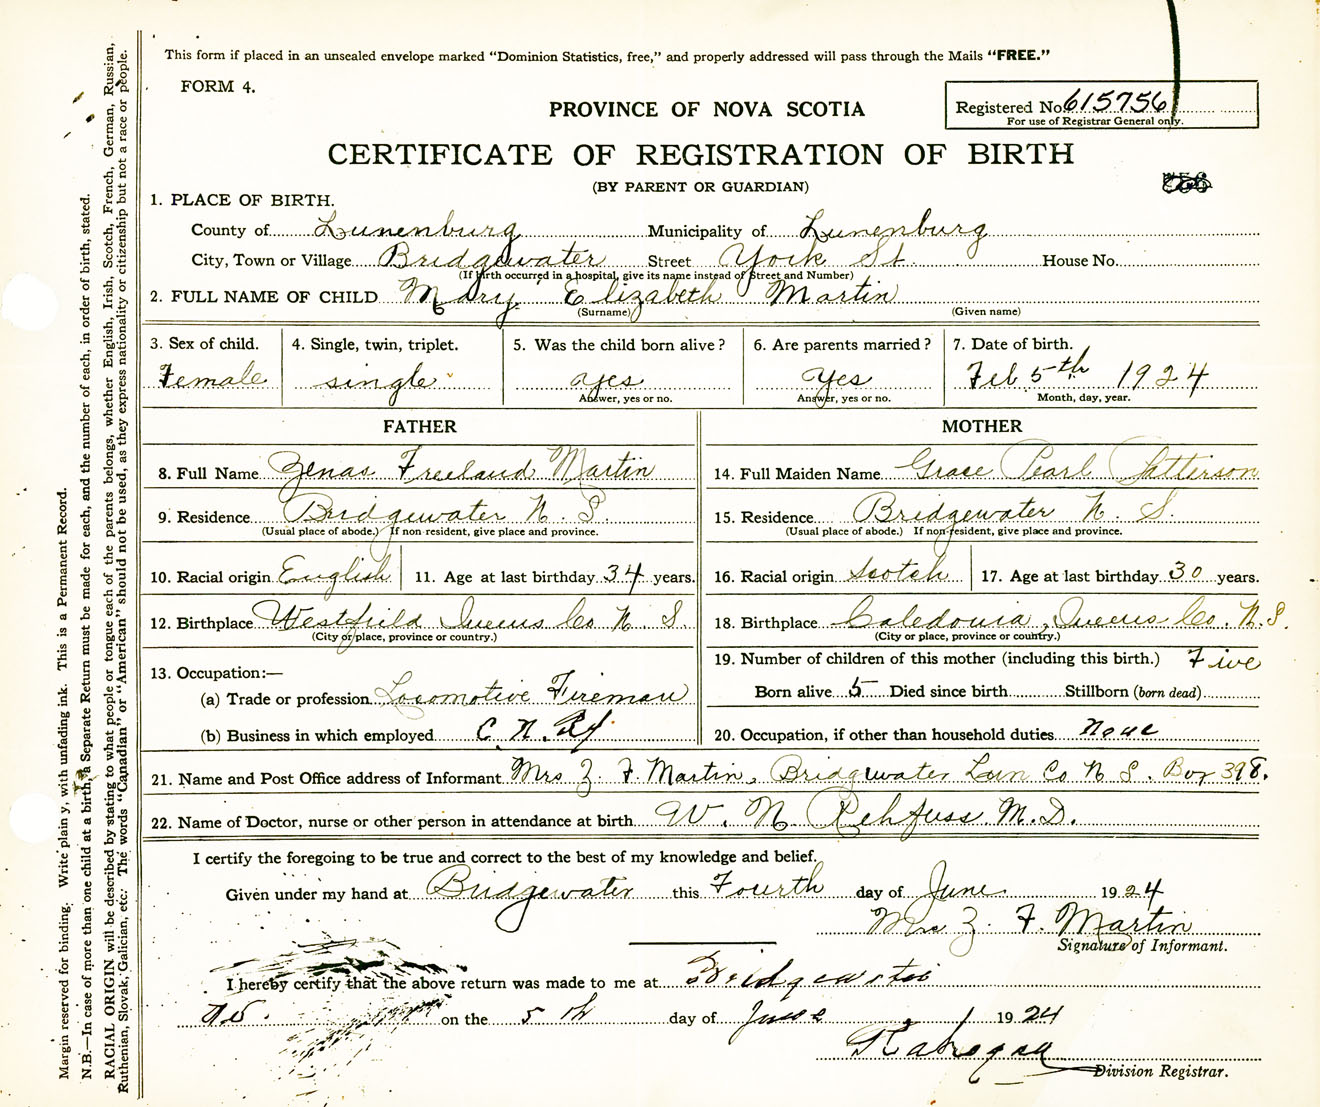 This form if placed in an unsealed envelope marked "Dominion Statistics, free," and properly addressed will pass through the Mails "FREE."
FORM 4.
Registered No. 615756
For use of Registrar General only.
PROVINCE OF NOVA SCOTIA
CERTIFICATE OF REGISTRATION OF BIRTH
(BY PARENT OR GUARDIAN)
1. PLACE OF BIRTH.
County of Lunenburg Municipality of Lunenburg
City, Town or Village Bridgewater Street York St. House No.
(If birth occurred in a hospital, give its name instead of Street and Number)
2. FULL NAME OF CHILD Mary Elizabeth Martin
(Surname) (Given name)
3. Sex of child. 4. Single, twin, triplet. 5. Was the child born alive? 6. Are parents married? 7. Date of birth.
Female single yes Yes Feb 5th 1924
Answer, yes or no. Answer, yes or no. Month, day, year.
FATHER MOTHER
8. Full Name Zenas Freeland Martin 14. Full Maiden Name Grace Pearl Patterson
9. Residence Bridgewater N. S. 15. Residence Bridgewater N. S.
(Usual place of abode.) If non-resident, give place and province. (Usual place of abode.) If non-resident, give place and province.
10. Racial origin English 11. Age at last birthday 34 years. 16. Racial origin Scotch 17. Age at last birthday 30 years.
12. Birthplace Westfield Queens Co N S 18. Birthplace Caledonia, Queens Co. N.S.
(City or place, province or country.) (City or place, province or country.)
13. Occupation:— 19. Number of children of this mother (including this birth.) Five
(a) Trade or profession Locomotive Fireman Born alive 5 Died since birth Stillborn (born dead)
(b) Business in which employed C. N. Ry 20. Occupation, if other than household duties none
21. Name and Post Office address of Informant Mrs Z F Martin, Bridgewater Lun Co N S. Box 398.
22. Name of Doctor, nurse or other person in attendance at birth W. N. Rehfuss M.D.
I certify the foregoing to be true and correct to the best of my knowledge and belief.
Given under my hand at Bridgewater this Fourth day of June 1924
Mrs Z. F. Martin
Signature of Informant.
I hereby certify that the above return was made to me at Bridgewater
N.S. on the 5th day of June 1924
Division Registrar.
Margin reserved for binding. Write plainly, with unfading ink. This is a Permanent Record.
N.B.—In case of more than one child at a birth, a Separate Return must be made for each, and the number of each, in order of birth, stated.
RACIAL ORIGIN will be described by stating to what people or tongue each of the parents belongs, whether English, Irish, Scotch, French, German, Russian,
Ruthenian, Slovak, Galician, etc. The words "Canadian" or "American" should not be used, as they express nationality or citizenship but not a race or people.